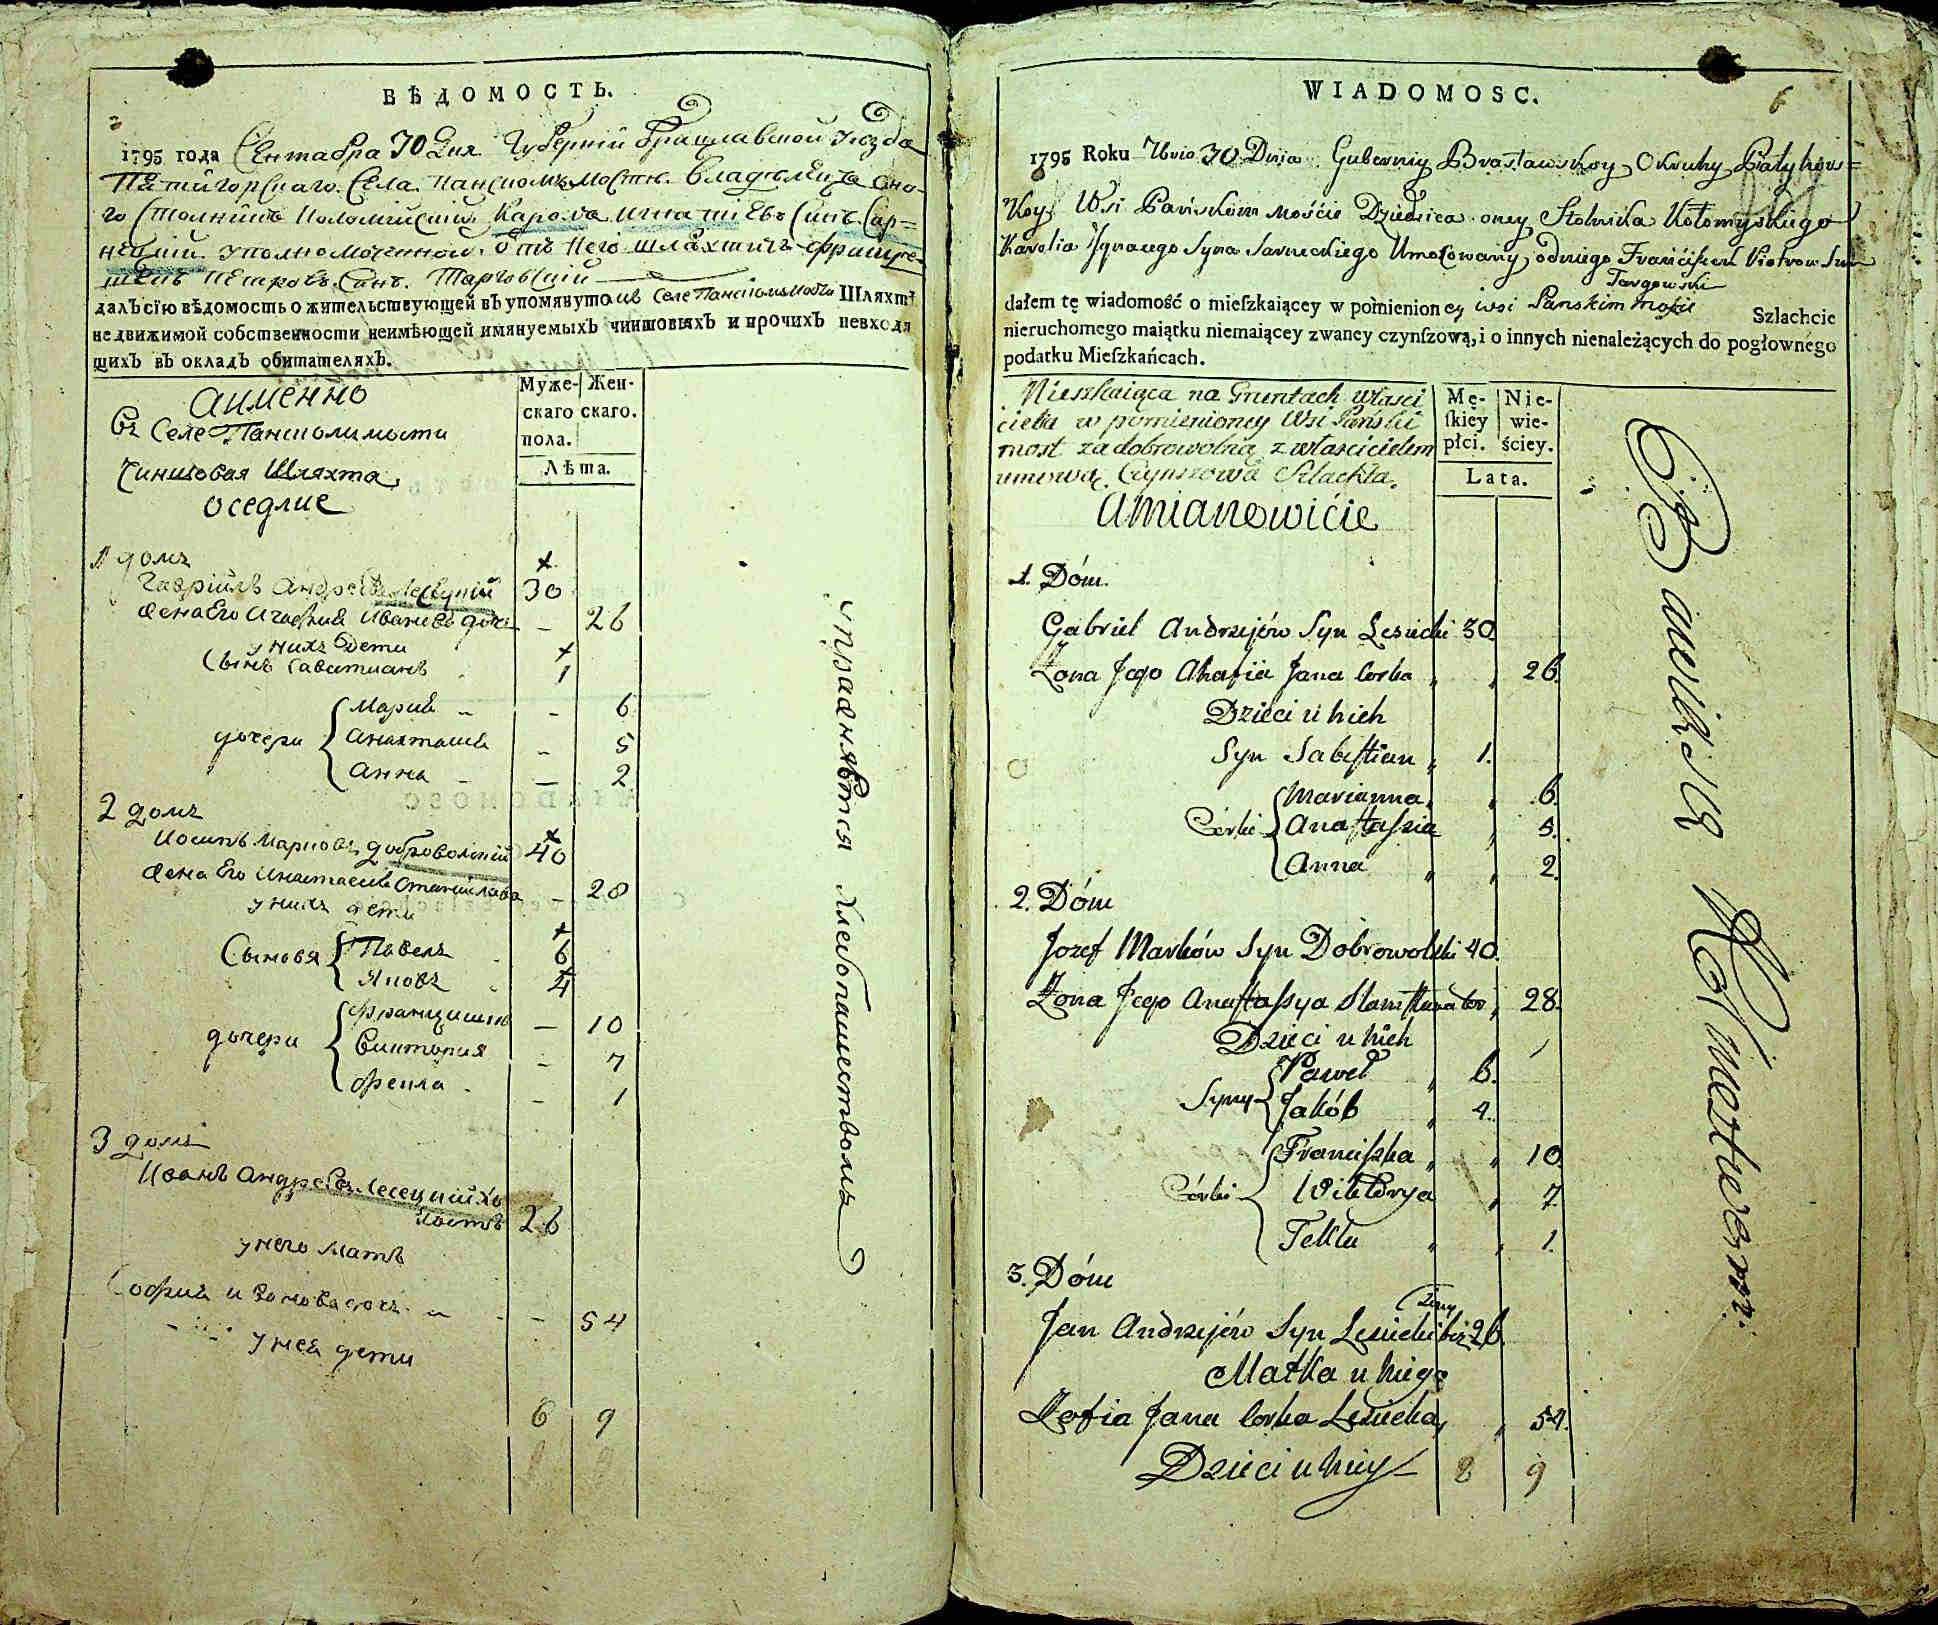 ВѢДОМОСТЬ.
1795 года Сентабра 30 Дня Губернiи Брацлавской уезда
Пятигорскаго Села Панскомъ Мостѣ владѣлица оно-
го Столникъ Коломийский Карола Игнатиевъ Синъ Сар-
нецкий уполномоченной отъ Него шляхтичъ Францы-
шекъ Петровъ Синъ Тарговский
далъ сїю вѣдомость о жительствующей въ упомянутомъ Селе Панскомъ Мосте Шляхтѣ
недвижимой собственности неимѣющей имянуемыхъ чиншовыхъ и прочихъ невходя
щихъ въ окладъ обитателяхъ.
Муже- Жен-
скаго скаго.
пола.
Лѣта.
аименно
Въ Селе Панскомъ мости
Чиншовая Шляхта
оседлие
1 домъ
Гаврiилъ Андреевъ Лесецкий 30
жена Его Агафия Иванова дочь - 26
у нихъ дети
Сынъ Савастианъ 1
дочери
Мария - - 6
Анастасия - 5
Анна - - 2
2 домъ
Иосипъ Марковъ Добровольский 40
жена Его Анастасия Станислава - 28
у нихъ дети
Сыновя
Павелъ 6
Яковъ 4
дочери
Францишка - 10
Виктория - 7
Фекла - 1
3 домъ
Иванъ Андреевъ Лесецкий хо
лостъ 26
у него мать
София Иванова дочь - 54
у нея дети
6 9
упражняется хлебопашествомъ
WIADOMOSC.
6
1795 Roku 7bris 30 Dnia Guberniy Bracławskoy Okruhy Patyhors=
Koy Wsi Pańskim Moście Dziedzica oney Stolnika Kołomyskiego
Karolia Ignacego Syna Sarneckiego Umocowany odniego Franciszek Piotrow Syn
Targowski
dałem tę wiadomość o mieſzkaiącey w pomienioney wsi Panskim moście Szlachcie
nieruchomego maiątku niemaiącey zwaney czynſzową, i o innych nienależących do pogłownégo
podatku Mieſzkańcach.
Mieszkaiąca na Gruntach właści
ciela w pomienioney Wsi Pański
most za dobrowolną z właścicielem
umową Czynszowa Szlachta.
Amianowićie
Mę- Nie-
ſkiéy wie-
płci. ściey.
Lata.
1. Dóm.
Gabriel Andrzejów Syn Lesiecki 30
Żona Jego Ahafia Jana Corka 26.
Dzieci u nich
Syn Sabestian 1.
Córki
Marianna 6.
Anastaſzia 5.
Anna 2.
2. Dóm
Jozef Marków Syn Dobrowolski 40.
Żona Jego Anastaſsya Stanisława Cor 28.
Dzieci u nich
Syny
Paweł 6.
Jakób 4.
Córki
Franciſzka 10.
Wiktorya 7.
Tekla 1.
3. Dóm
Jan Andrzejów Syn Lesiecki bez 26.
żony
Matka u niego
Zofia Jana Corka Lesiecka 54.
Dzieci u niey
8 9